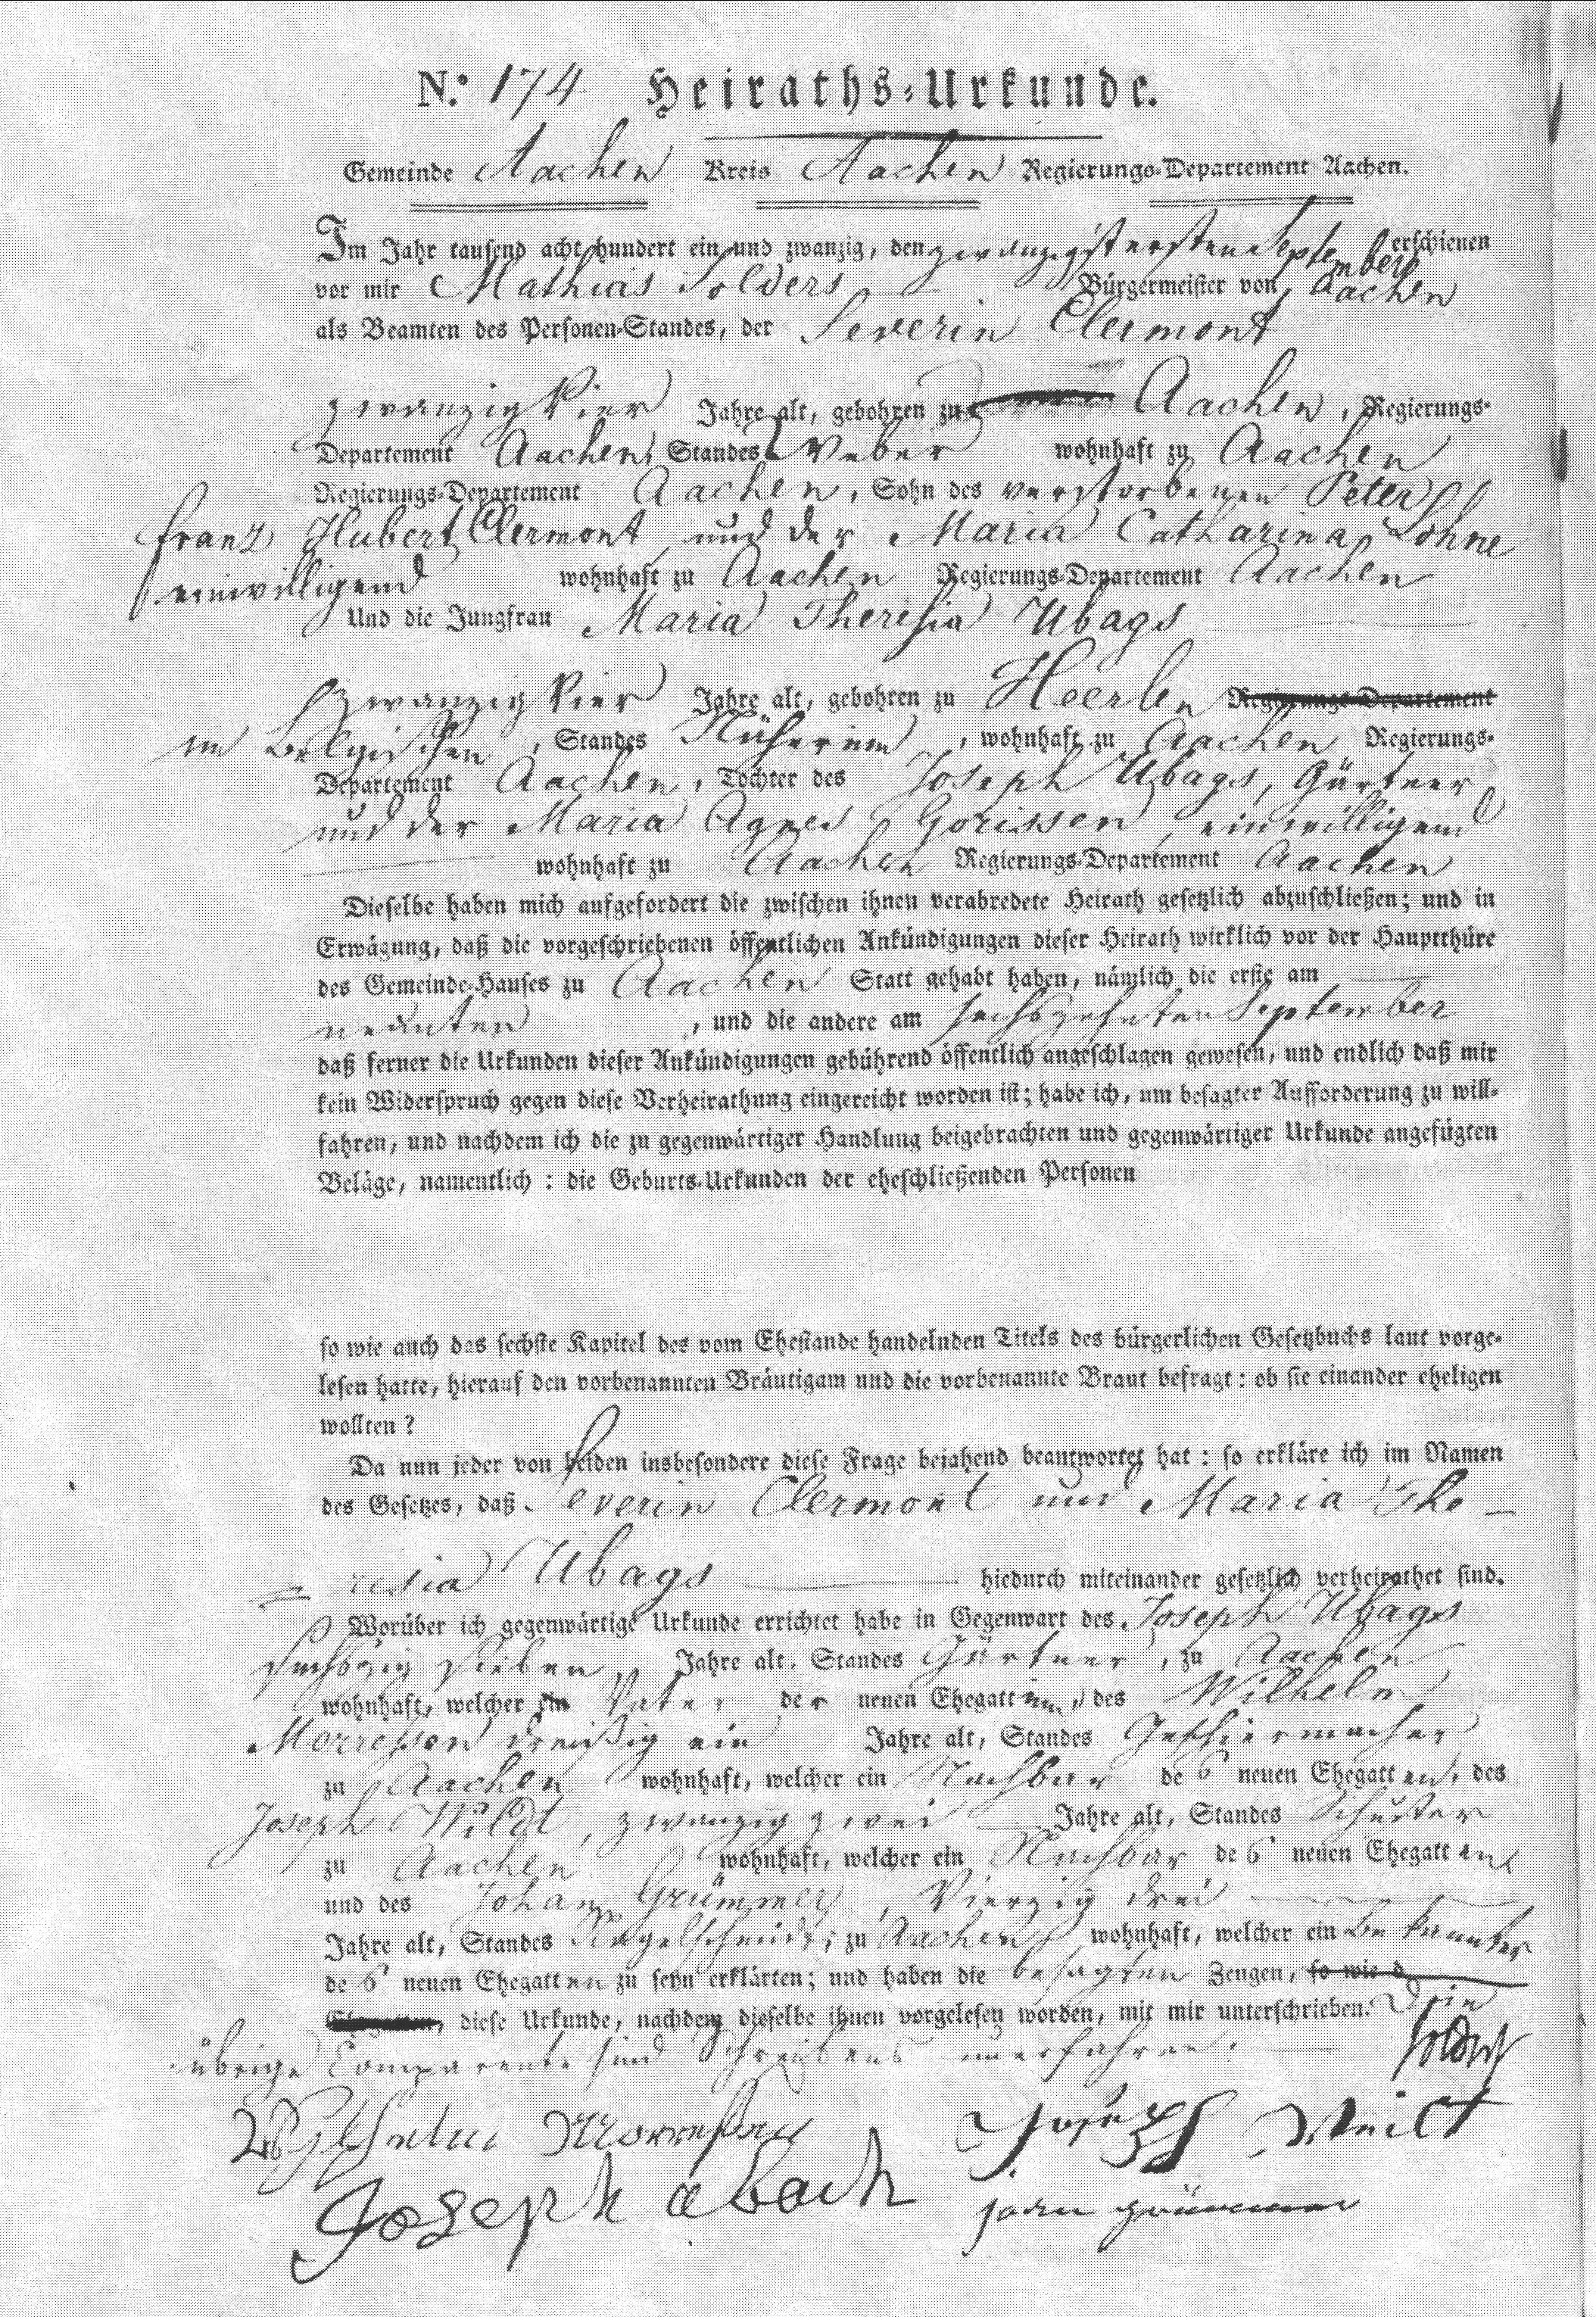 N.º 174 Heiraths-Urkunde.
Gemeinde Aachen Kreis Aachen Regierungs-Departement Aachen.
Im Jahr tausend acht hundert ein und zwanzig, den zwanzigst ersten September erschienen
vor mir Mathias Solders Bürgermeister von Aachen
als Beamten des Personen-Standes, der Severin Clermont
zwanzig Vier Jahre alt, gebohren zu Aachen, Regierungs-
Departement Aachen, Standes Weber wohnhaft zu Aachen
Regierungs-Departement Aachen, Sohn des verstorbenen Peter
Franz Hubert Clermont, und der Maria Catharina Lohne
einwilligend wohnhaft zu Aachen Regierungs-Departement Aachen
Und die Jungfrau Maria Theresia Ubags
zwanzig Vier Jahre alt, gebohren zu Heerlen Regierungs-Departement
im Belgischen, Standes Näherinn, wohnhaft zu Aachen Regierungs-
Departement Aachen, Tochter des Joseph Ubags, Gärtner
und der Maria Agnes Gorissen, einwilligend
wohnhaft zu Aachen Regierungs-Departement Aachen
Dieselbe haben mich aufgefordert die zwischen ihnen verabredete Heirath gesetzlich abzuschließen; und in
Erwägung, daß die vorgeschriebenen öffentlichen Ankündigungen dieser Heirath wirklich vor der Hauptthüre
des Gemeinde-Hauses zu Aachen Statt gehabt haben, nämlich die erste am
neunten, und die andere am sechszehnten September
daß ferner die Urkunden dieser Ankündigungen gebührend öffentlich angeschlagen gewesen, und endlich daß mir
kein Widerspruch gegen diese Verheirathung eingereicht worden ist; habe ich, um besagter Aufforderung zu will-
fahren, und nachdem ich die zu gegenwärtiger Handlung beigebrachten und gegenwärtiger Urkunde angefügten
Beläge, namentlich: die Geburts-Urkunden der eheschließenden Personen
so wie auch das sechste Kapitel des vom Ehestande handelnden Titels des bürgerlichen Gesetzbuchs laut vorge-
lesen hatte, hierauf den vorbenannten Bräutigam und die vorbenannte Braut befragt: ob sie einander eheligen
wollten?
Da nun jeder von beiden insbesondere diese Frage bejahend beantwortet hat: so erkläre ich im Namen
des Gesetzes, daß Severin Clermont und Maria The-
resia Ubags hiedurch miteinander gesetzlich verheirathet sind.
Worüber ich gegenwärtige Urkunde errichtet habe in Gegenwart des Joseph Ubags
sechszig sieben Jahre alt, Standes Gärtner, zu Aachen
wohnhaft, welcher ein Vater der neuen Ehegattinn, des Wilhelm
Morresson dreißig ein Jahre alt, Standes Geschirmacher
zu Aachen wohnhaft, welcher ein Nachbar der neuen Ehegatten, des
Joseph Wildt, zwanzig zwei Jahre alt, Standes Schuster
zu Aachen wohnhaft, welcher ein Nachbar der neuen Ehegatten
und des Johan Grümmer, Vierzig drei
Jahre alt, Standes Nagelschmidt, zu Aachen wohnhaft, welcher ein Bekannter
der neuen Ehegatten zu seyn erklärten; und haben die besagten Zeugen, so wie d
Ehegatten, diese Urkunde, nachdem dieselbe ihnen vorgelesen worden, mit mir unterschrieben. Die
übrige Comparente sind Schreibens unerfahren.
Solders
Wilhelm Morressen Joseph Weilt
Joseph Obach